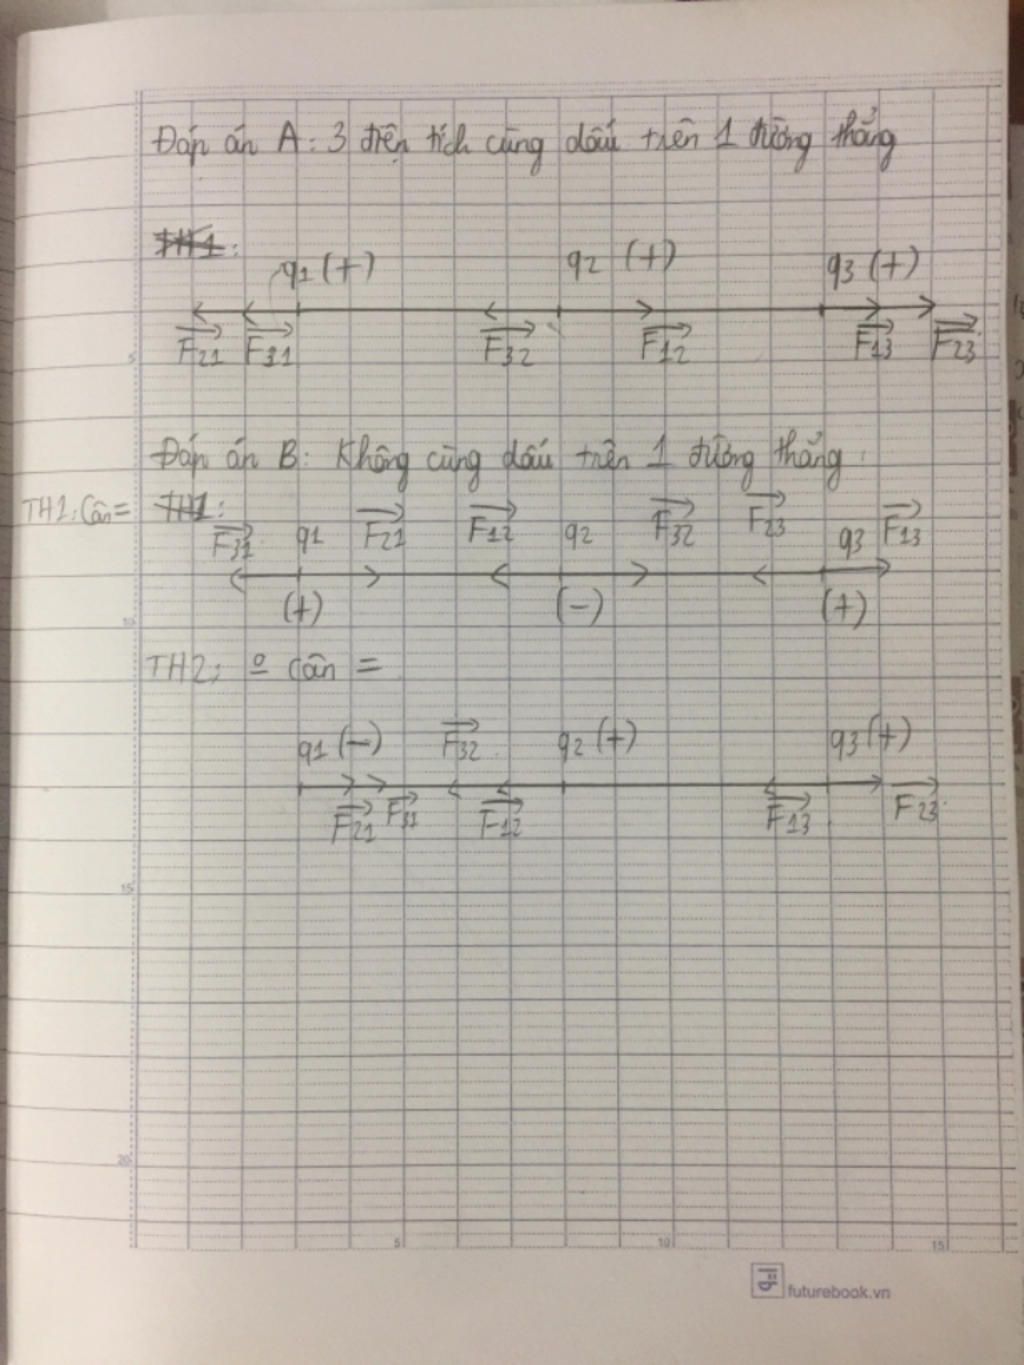 Đáp án A: 3 điện tích cùng dấu trên 1 đường thẳng
TH1:
q1 (+) q2 (+) q3 (+)
F21 F31 F32 F12 F13 F23
5
Đáp án B: Không cùng dấu trên 1 đường thẳng.
TH1: Cân = TH1:
F31 q1 F21 F12 q2 F32 F23 q3 F13
(+) (-) (+)
10
TH2: o cân =
q1 (-) F32 q2 (+) q3 (+)
F21 F31 F12 F13 F23
15
20
5 10 15
futurebook.vn